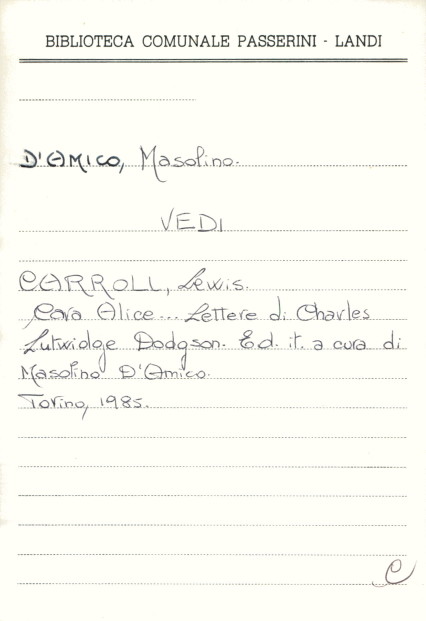 BIBLIOTECA COMUNALE PASSERINI - LANDI
D'AMICO, Masolino.
VEDI
CARROLL, Lewis.
Cara Alice... Lettere di Charles
Lutwidge Dodgson. Ed. it. a cura di
Masolino D'Amico.
Torino, 1985.
C